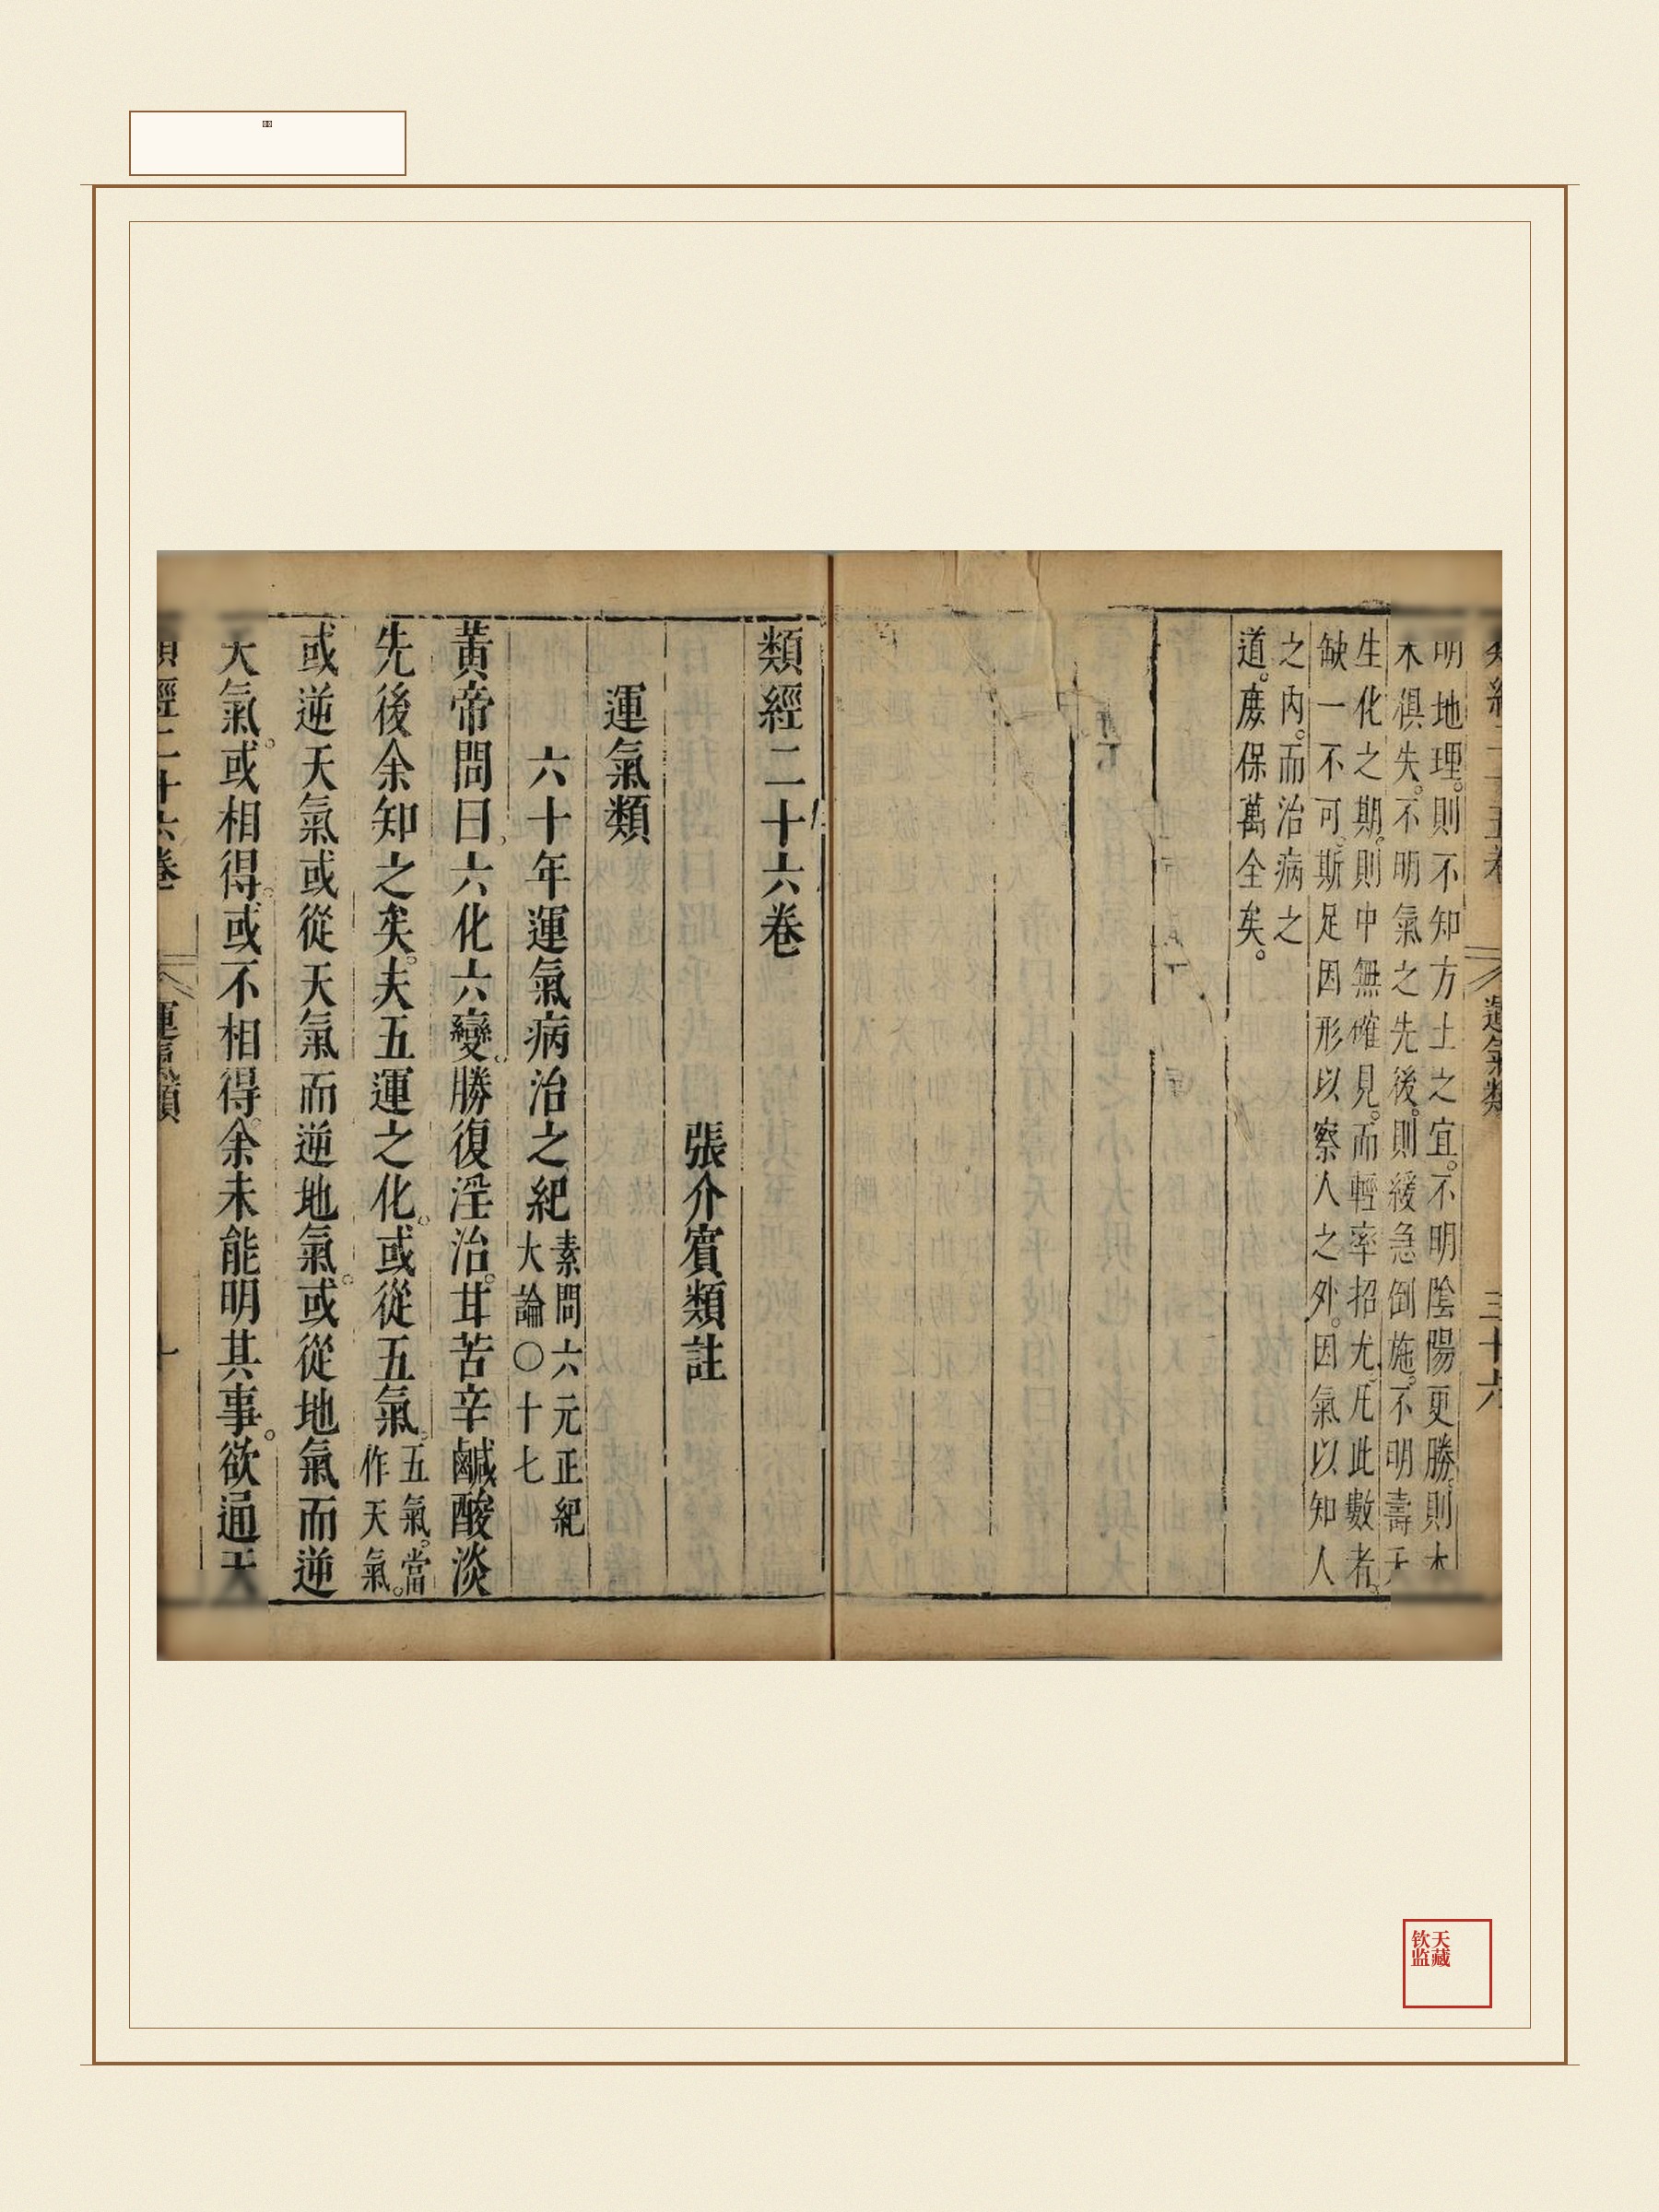 類經二十五卷 運氣類 三十六
明地理。則不知方土之宜。不明陰陽更勝。則本
末俱失。不明氣之先後。則緩急倒施。不明壽夭
生化之期。則中無確見。而輕率招尤。凡此數者。
缺一不可。斯足因形以察人之外。因氣以知人
之內。而治病之
道。庶保萬全矣。
類經二十六卷
張介賓類註
運氣類
六十年運氣病治之紀 素問六元正紀
大論〇十七
黃帝問曰。六化六變。勝復淫治。甘苦辛鹹酸淡
先後余知之矣。夫五運之化。或從五氣。 五氣。當
作天氣。
或逆天氣或從天氣而逆地氣。或從地氣而逆
天氣。或相得。或不相得。余未能明其事。欲通天
類經二十六卷 運氣類
钦天
监藏